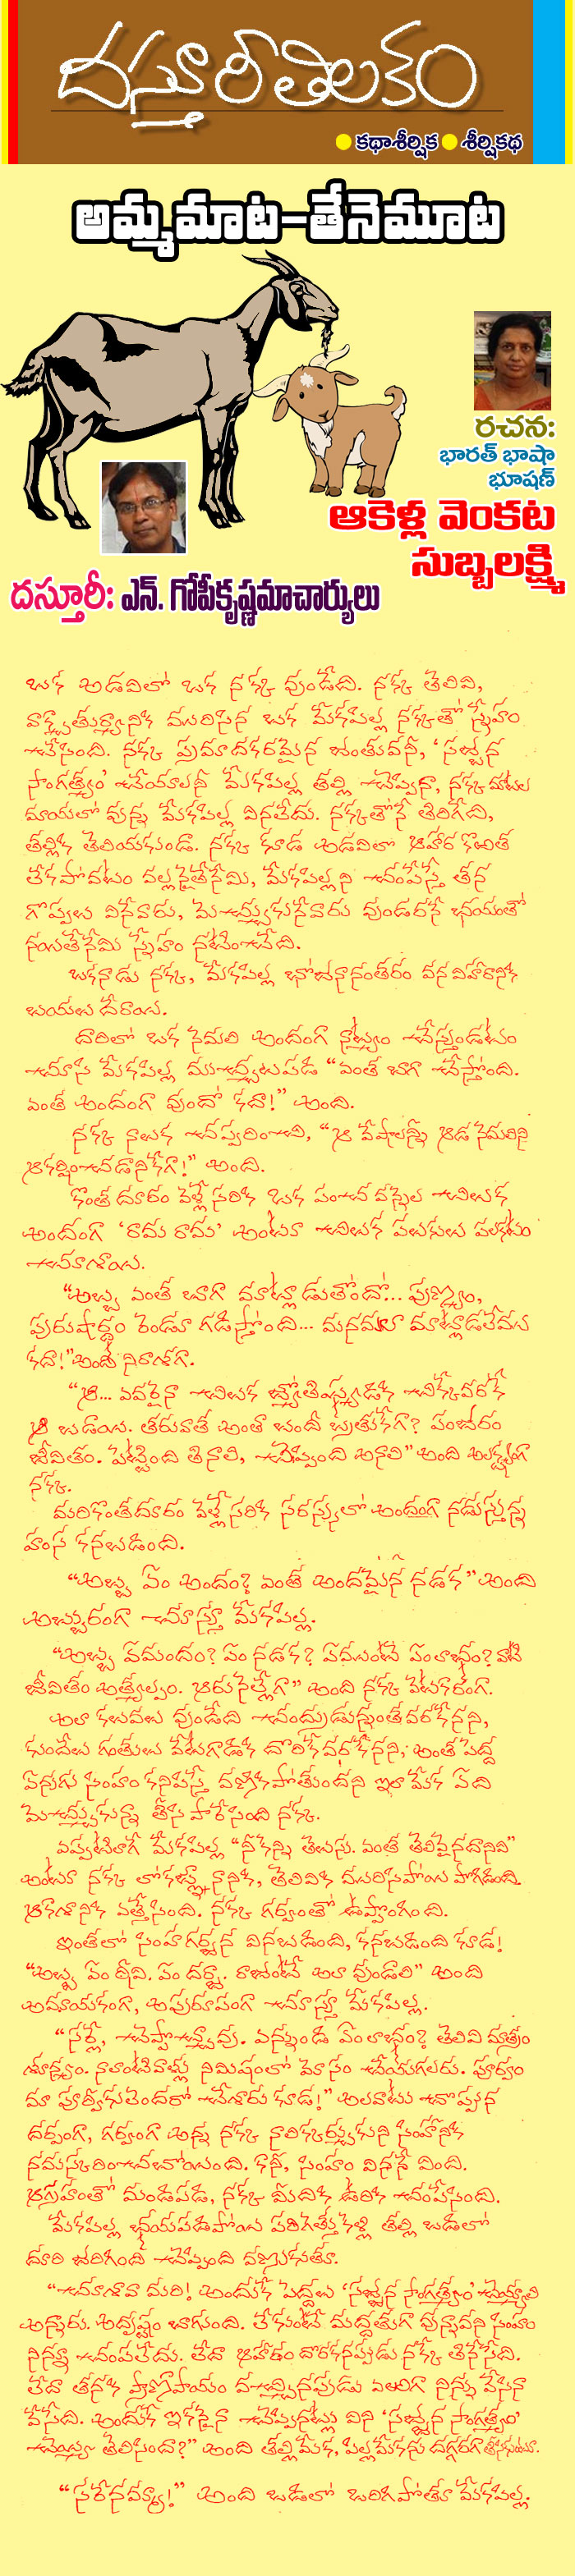 దస్తూరీ తిలకం
కథాశీర్షిక శీర్షికథ
అమ్మమాట-తేనెమూట
రచన:
భారత్ భాషా
భూషణ్
ఆకెళ్ల వెంకట
సుబ్బలక్ష్మి
దస్తూరీ: ఎన్. గోపీకృష్ణమాచార్యులు
ఒక అడవిలో ఒక నక్క వుండేది. నక్క తెలివి,
వాక్చాతుర్యానికి మురిసిన ఒక మేకపిల్ల నక్కతో స్నేహం
చేసింది. నక్క ప్రమాదకరమైన జంతువనీ, 'సజ్జన
సాంగత్యం' చేయాలనీ మేకపిల్ల తల్లి చెప్పినా, నక్క మాటల
మాయలో వున్న మేకపిల్ల వినలేదు. నక్కతోనే తిరిగేది,
తల్లికి తెలియకుండా. నక్క కూడ అడవిలో ఆహార కొఱత
లేకపోవటం వల్లనైతేనేమి, మేకపిల్లని చంపేస్తే తన
గొప్పలు వినేవారు, మెచ్చుకునేవారు వుండరనే భయంతో
నయితేనేమి స్నేహం నటించేది.
ఒకనాడు నక్క, మేకపిల్ల భోజనానంతరం వన విహారానికి
బయలు దేరాయి.
దారిలో ఒక నెమలి అందంగా నాట్యం చేస్తుండటం
చూసి మేకపిల్ల ముచ్చటపడి "ఎంత బాగా చేస్తోంది.
ఎంత అందంగా వుందో కదా!" అంది.
నక్క నాలుక చప్పరించి, "ఆ వేషాలన్నీ ఆడ నెమలిని
ఆకర్షించడానికేగా!" అంది.
కొంత దూరం వెళ్లే సరికి ఒక పంచ వన్నెల చిలుక
అందంగా 'రామ రామ' అంటూ చిలుక పలుకులు పలకటం
చూశాయి.
"అబ్బ ఎంత బాగా మాట్లాడుతోందో... పుణ్యం,
పురుషార్థం రెండూ గడిస్తోంది... మనమలా మాట్లాడలేము
కదా!" అంది నిరాశగా.
"ఆ... ఎవరైనా చిలుక జ్యోతిష్యుడికి చిక్కేవరకే
ఆ బడాయి. తరువాత అంతా బందీ బ్రతుకేగా? పంజరం
జీవితం. పెట్టింది తినాలి, చెప్పింది అనాలి" అంది అలక్ష్యంగా
నక్క.
మరికొంతదూరం వెళ్లే సరికి సరస్సులో అందంగా నడుస్తున్న
హంస కనబడింది.
"అబ్బ ఏం అందం? ఎంత అందమైన నడక" అంది
అబ్బురంగా చూస్తూ మేకపిల్ల.
"అబ్బ ఏమందం? ఏం నడక? ఏమయితే ఏం లాభం? వాటి
జీవితం అత్యల్పం. ఆరునెల్లేగా" అంది నక్క వెటకారంగా.
అలా కలువలు వుండేది చంద్రుడున్నంతవరకేనని,
కుందేలు గంతులు వేటగాడికి దొరికేవరకేనని, అంత పెద్ద
ఏనుగు సింహం కనిపిస్తే వణికిపోతుందని ఇలా మేక ఏది
మెచ్చుకున్నా తీసి పారేసింది నక్క.
ఎప్పటిలాగే మేకపిల్ల "నీకెన్ని తెలుసు. ఎంత తెలివైనదానివి"
అంటూ నక్క లోకజ్ఞానానికి, తెలివికి మురిసిపోయి పొగిడింది.
ఆకాశానికి ఎత్తేసింది. నక్క గర్వంతో ఉప్పొంగింది.
ఇంతలో సింహగర్జన వినబడింది, కనబడింది కూడ!
"అబ్బ ఏం ఠీవి. ఏం దర్జా. రాజంటే అలా వుండాలి" అంది
అమాయకంగా, అపురూపంగా చూస్తూ మేకపిల్ల.
"సర్లే, చెప్పొచ్చావు. ఎన్నుండి ఏం లాభం? తెలివి మాత్రం
శూన్యం. నాలాంటివాళ్లు నిమిషంలో మోసం చేయగలరు. పూర్వం
మా పూర్వీకులెందరో చేశారు కూడ!" అలవాటు చొప్పున
దర్పంగా, గర్వంగా అన్న నక్క నాలిక్కర్చుకుని సింహానికి
నమస్కరించబోయింది. కానీ, సింహం విననే వింది.
ఆగ్రహంతో మండిపడి, నక్క మీదికి ఉరికి చంపేసింది.
మేకపిల్ల భయపడిపోయి పరిగెత్తుకెళ్లి తల్లి ఒడిలో
దూరి జరిగింది చెప్పింది వణుకుతూ.
"చూశావా మరి! అందుకే పెద్దలు 'సజ్జన సాంగత్యం' చెయ్యాలి
అన్నారు. అదృష్టం బాగుంది. లేకుంటే మద్దతుగా వున్నావని సింహం
నిన్నూ చంపలేదు. లేదా ఆహారం దొరకనప్పుడు నక్కే తినేసేది.
లేదా తనకి ప్రాణాపాయం వచ్చినపుడు ఎఱగా నిన్ను వేసినా
వేసేది. అందుకే ఇకనైనా చెప్పినట్లు విని 'సజ్జన సాంగత్యం'
చెయ్యి తెలిసిందా?" అంది తల్లిమేక, పిల్లమేకను దగ్గరగా తీసుకుంటూ.
"సరేనమ్మా!" అంది ఒడిలో ఒరిగిపోతూ మేకపిల్ల.